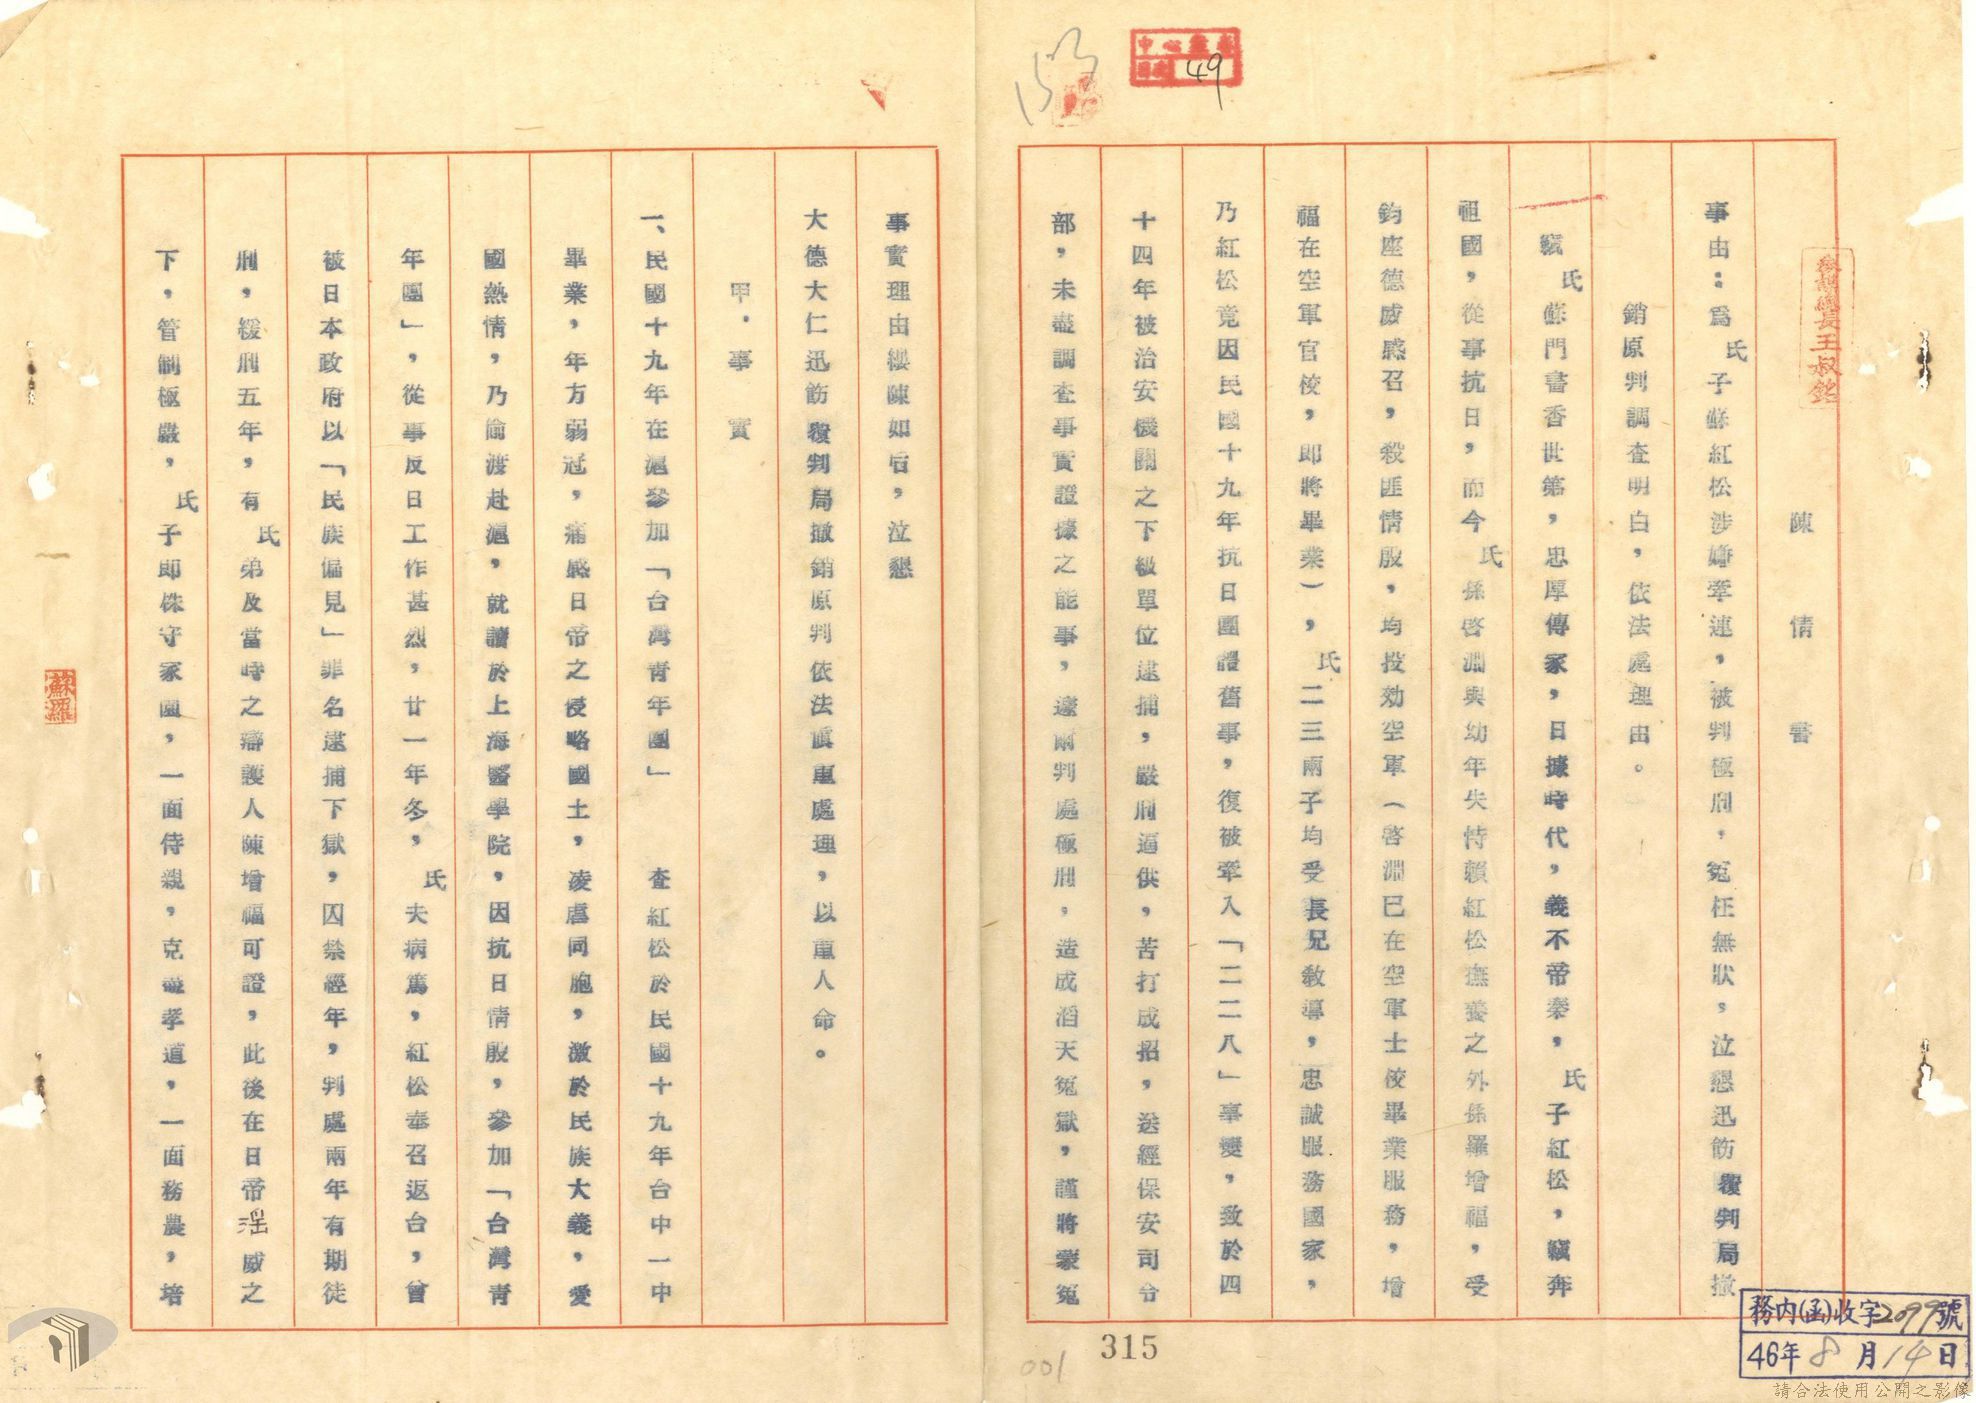 陳情書
事由：為氏子蘇紅松涉嫌牽連，被判極刑，冤枉無狀，泣懇迅飭覆判局撤
銷原判調查明白，依法處理由。
竊氏蘇門書香世第，忠厚傳家，日據時代，義不帝秦，氏子紅松，竊奔
祖國，從事抗日，而今氏孫啓淵與幼年失恃賴紅松撫養之外孫羅增福，受
鈞座德威感召，殺匪情殷，均投効空軍（啓淵已在空軍士校畢業服務，增
福在空軍官校，即將畢業），氏二三兩子均受長兄教導，忠誠服務國家，
乃紅松竟因民國十九年抗日團體舊事，復被牽入「二二八」事變，致於四
十四年被治安機關之下級單位逮捕，嚴刑逼供，苦打成招，送經保安司令
部，未盡調查事實證據之能事，遽爾判處極刑，造成滔天冤獄，謹將蒙冤
事實理由縷陳如后，泣懇
大德大仁迅飭覆判局撤銷原判依法慎重處理，以重人命。
甲．事實
一、民國十九年在滬參加「台灣青年團」 查紅松於民國十九年台中一中
畢業，年方弱冠，痛感日帝之侵略國土，凌虐同胞，激於民族大義，愛
國熱情，乃偷渡赴滬，就讀於上海醫學院，因抗日情殷，參加「台灣青
年團」，從事反日工作甚烈，廿一年冬，氏夫病篤，紅松奉召返台，曾
被日本政府以「民族偏見」罪名逮捕下獄，囚禁經年，判處兩年有期徒
刑，緩刑五年，有氏弟及當時之辯護人陳增福可證，此後在日帝淫威之
下，管制極嚴，氏子即株守家園，一面侍親，克盡孝道，一面務農，培
參謀總長王叔銘
49
153
蘇羅
315
001
務內(函)收字2099號
46年8月14日
請合法使用公開之影像